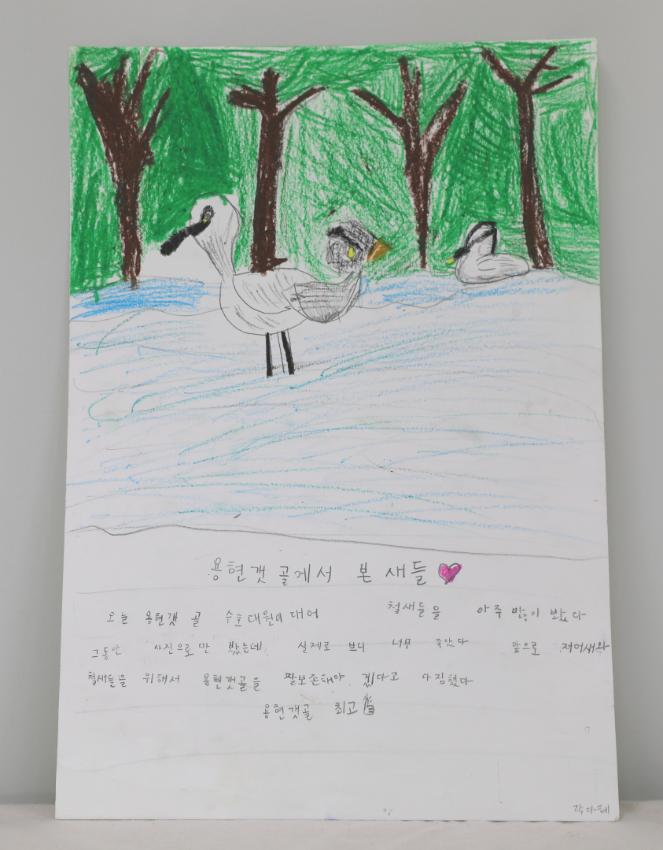 용현갯골게서 본 새들
오늘 용현갯골 수호대원이 대어 철새들을 아주 많이 봤다
그동안 사진으로만 봤는데 실제로 보니 너무 좋았다 앞으로 저어새와
철새들을 위해서 용현갯골을 잘보존해야 겠다고 다짐했다
용현갯골 최고